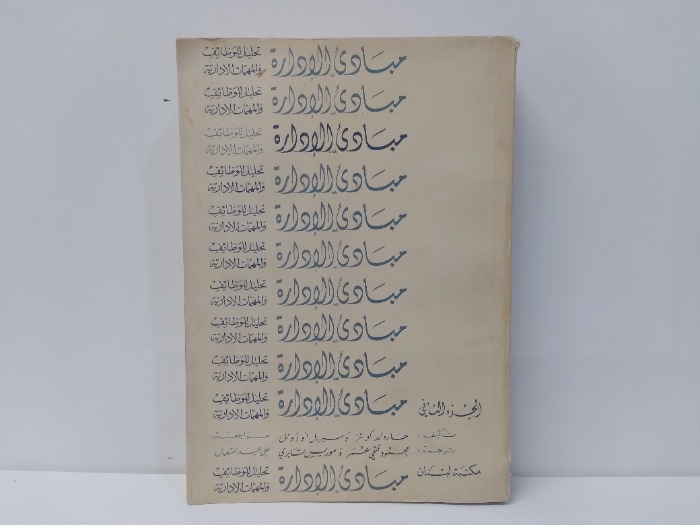 مبادئ الإدارة تحليل للوظائف
والمهمات الادارية
مبادئ الإدارة تحليل للوظائف
والمهمات الادارية
مبادئ الإدارة تحليل للوظائف
والمهمات الادارية
مبادئ الإدارة تحليل للوظائف
والمهمات الادارية
مبادئ الإدارة تحليل للوظائف
والمهمات الادارية
مبادئ الإدارة تحليل للوظائف
والمهمات الادارية
مبادئ الإدارة تحليل للوظائف
والمهمات الادارية
مبادئ الإدارة تحليل للوظائف
والمهمات الادارية
مبادئ الإدارة تحليل للوظائف
والمهمات الادارية
الجزء الثاني مبادئ الإدارة تحليل للوظائف
والمهمات الادارية
تأليف: هارولد كونتز وسيريل اودونل مراجعة:
ترجمة: محمود فتحي عمر وموريس تابري علي عبد المتعال
مكتبة لبنان مبادئ الإدارة تحليل للوظائف
والمهمات الادارية